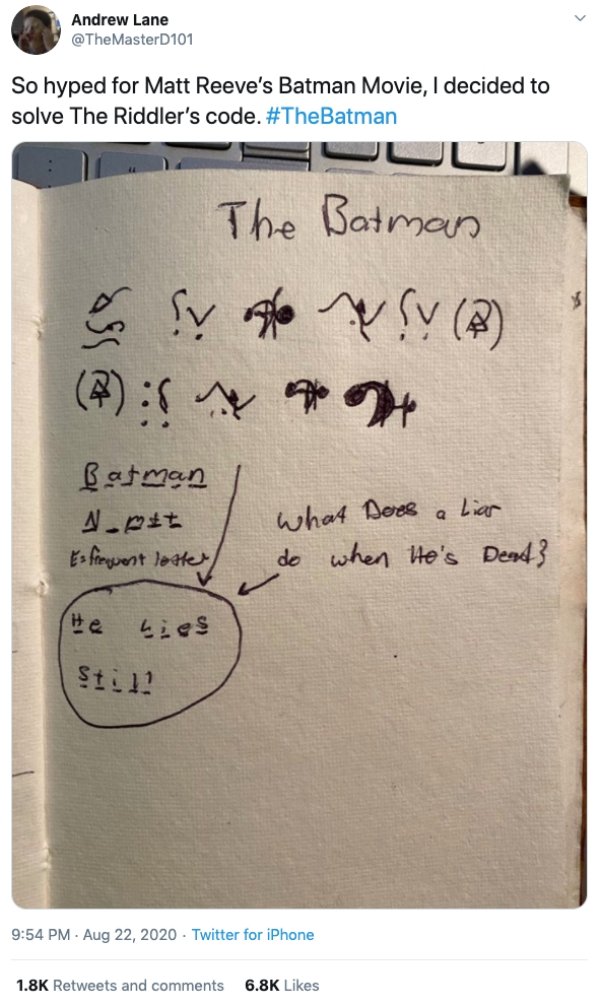 Andrew Lane
@TheMasterD101
So hyped for Matt Reeve's Batman Movie, I decided to
solve The Riddler's code. #TheBatman
The Batman
Batman
E=frequent letter
What Does a Liar
do when He's Dead?
He Lies
Still
9:54 PM · Aug 22, 2020 · Twitter for iPhone
1.8K Retweets and comments 6.8K Likes